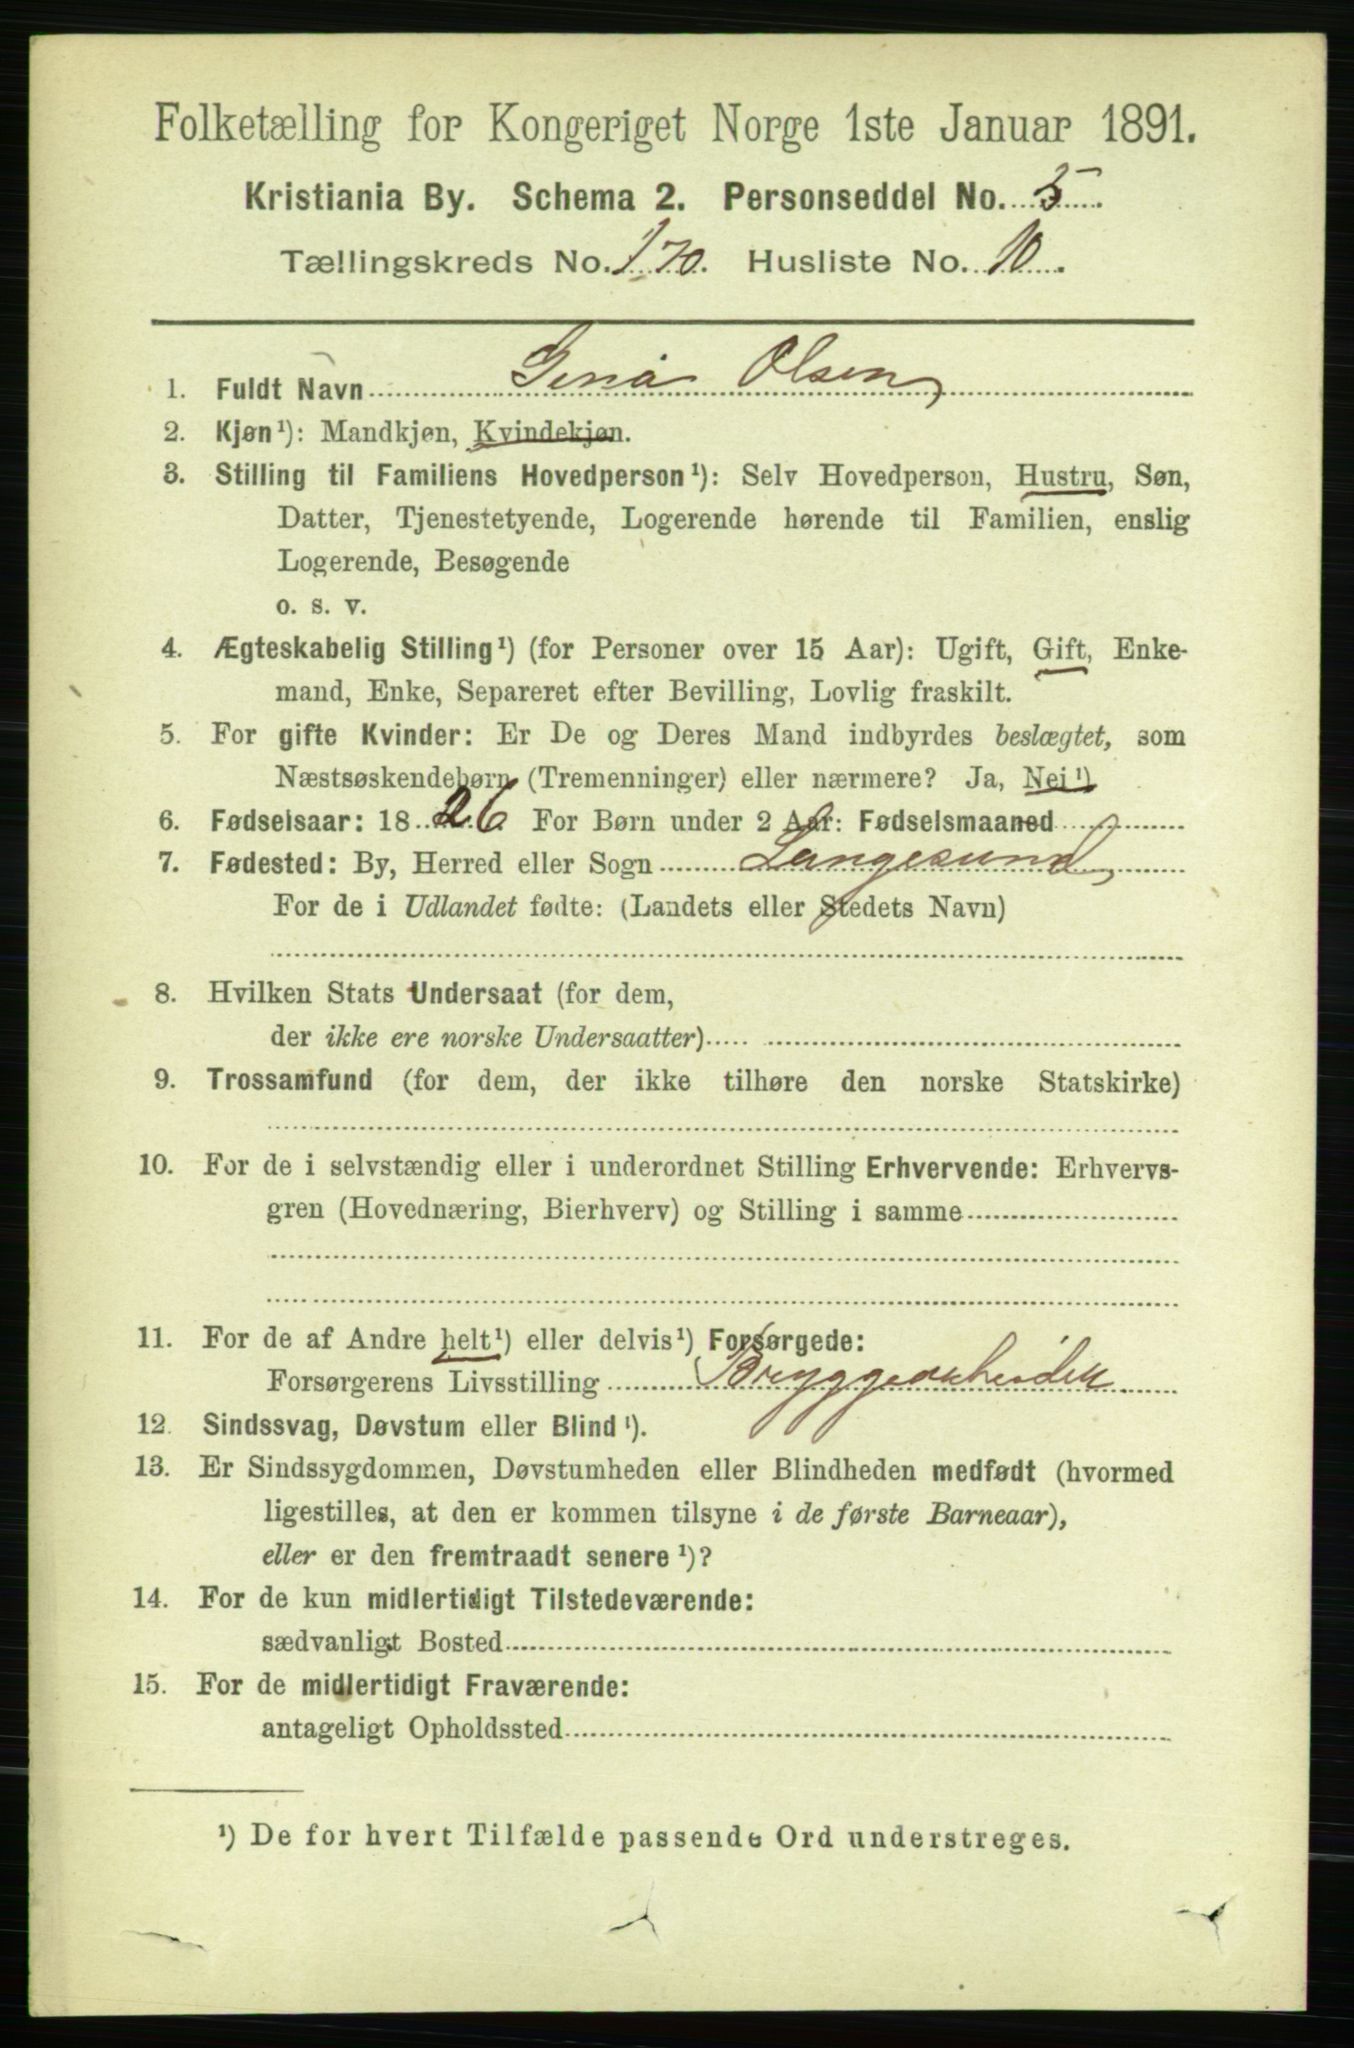 Folketælling for Kongeriget Norge 1ste Januar 1891.
Kristiania By. Schema 2. Personseddel No. 5.
Tællingskreds No. 170. Husliste No. 10.
1. Fuldt Navn Gina Olsen
2. Kjøn¹): Mandkjøn, Kvindekjøn.
3. Stilling til Familiens Hovedperson¹): Selv Hovedperson, Hustru, Søn,
Datter, Tjenestetyende, Logerende hørende til Familien, enslig
Logerende, Besøgende
o. s. v.
4. Ægteskabelig Stilling¹) (for Personer over 15 Aar): Ugift, Gift, Enke-
mand, Enke, Separeret efter Bevilling, Lovlig fraskilt.
5. For gifte Kvinder: Er De og Deres Mand indbyrdes beslægtet, som
Næstsøskendebørn (Tremenninger) eller nærmere? Ja, Nei¹)
6. Fødselsaar: 1826. For Børn under 2 Aar: Fødselsmaaned
7. Fødested: By, Herred eller Sogn Langesund
For de i Udlandet fødte: (Landets eller Stedets Navn)
8. Hvilken Stats Undersaat (for dem,
der ikke ere norske Undersaatter)
9. Trossamfund (for dem, der ikke tilhøre den norske Statskirke)
10. For de i selvstændig eller i underordnet Stilling Erhvervende: Erhvervs-
gren (Hovednæring, Bierhverv) og Stilling i samme
11. For de af Andre helt¹) eller delvis¹) Forsørgede:
Forsørgerens Livsstilling Bryggearbeider
12. Sindssvag, Døvstum eller Blind¹).
13. Er Sindssygdommen, Døvstumheden eller Blindheden medfødt (hvormed
ligestilles, at den er kommen tilsyne i de første Barneaar),
eller er den fremtraadt senere¹)?
14. For de kun midlertidigt Tilstedeværende:
sædvanligt Bosted
15. For de midlertidigt Fraværende:
antageligt Opholdssted
¹) De for hvert Tilfælde passende Ord understreges.